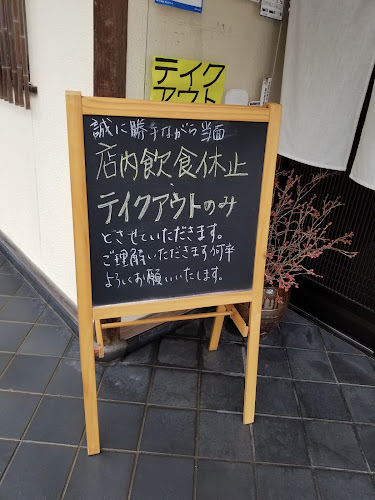 テイク
アウト
誠に勝手ながら当面
店内飲食休止
テイクアウトのみ
とさせていただきます。
ご理解いただきます何卒
よろしくお願いいたします。